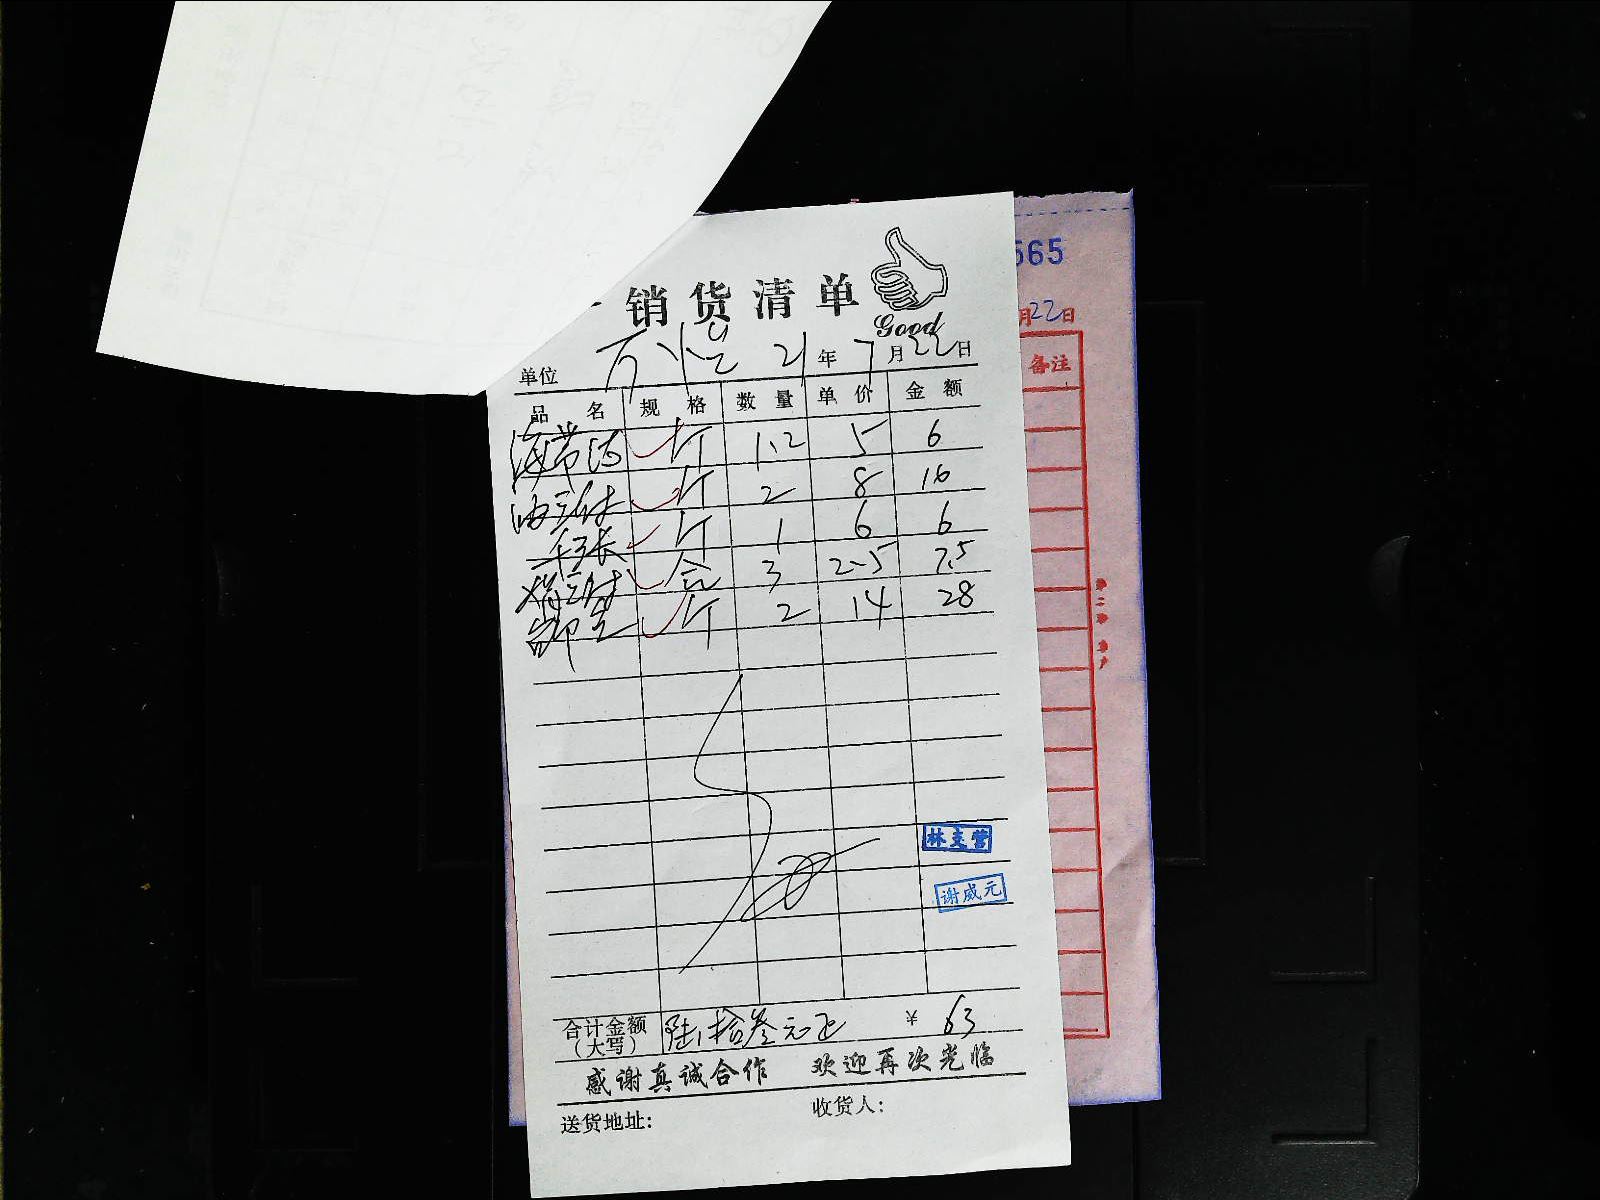 565
销货清单
Good
月22日
单位 21年7月22日
备注
品名 规格 数量 单价 金额
海带 斤 1.2 5 6
斤 2 8 16
千张 斤 1 6 6
合 3 2.5 7.5
斤 2 14 28
林支营
谢威元
合计金额 陆拾叁元正 ¥ 63
(大写)
感谢真诚合作 欢迎再次光临
送货地址: 收货人: